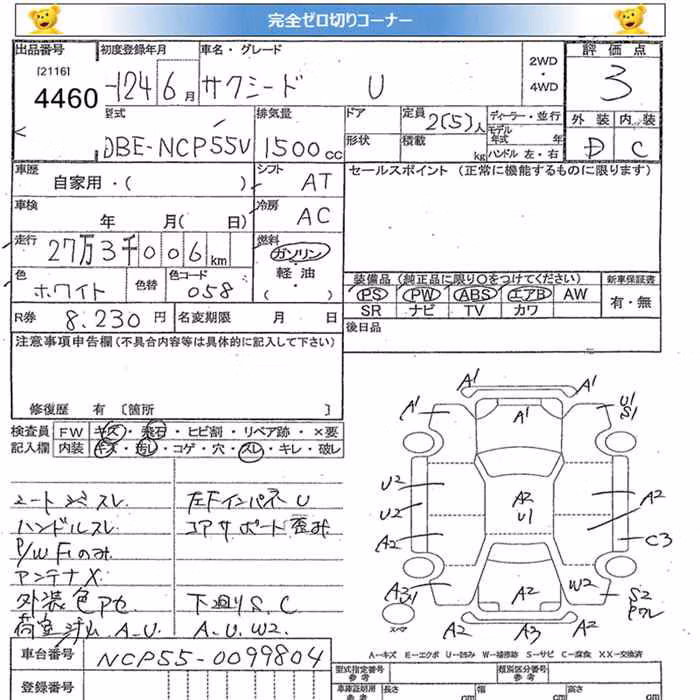 完全ゼロ切りコーナー
出品番号 初度登録年月 車名・グレード 2WD ・ 4WD 評価点
[2116]
4460 H24 6月 サクシード U 3
型式 排気量 ドア 定員 2(5)人 ディーラー・並行 外装 内装
DBE-NCP55V 1500cc 形状 積載 kg モデル年式 年式 ハンドル 左・右 D C
車歴 自家用・( ) シフト AT セールスポイント (正常に機能するものに限ります)
車検 年 月( 日) 冷房 AC
走行 27万3千006km 燃料 ガソリン
軽油
( ・ )
色 ホワイト 色替 色コード 058
装備品 (純正品に限り○をつけてください) 新車保証書
PS PW ABS エアB AW 有・無
SR ナビ TV カワ
R券 8.230円 名変期限 月 日 後日品
注意事項申告欄(不具合内容等は具体的に記入して下さい)
修復歴 有 〔箇所 〕
検査員 FW キズ・飛石・ヒビ割・リペア跡・×要
記入欄 内装 キズ・汚レ・コゲ・穴・スレ・キレ・破レ
シートシミスレ 左Fインパネ U
ハンドルスレ コアサポート歪み
P/W F1のみ
アンテナX
外装色アセ 下廻りS.C
荷室汚ム A.U. A.U.W2.
A1 A1
A1 A1 U1
S1
U2 A2
U1
U2 A2
A2 C3
A31 A2 W2 S2
スペア A2 A3 A2
A-キズ E-エクボ U-凹み W-補修跡 S-サビ C-腐食 XX-交換済
車台番号 NCP55-0099804
登録番号
型式指定番号 参考 類別区分番号 参考
車庫証明用 参考 長さ cm 幅 cm 高さ cm